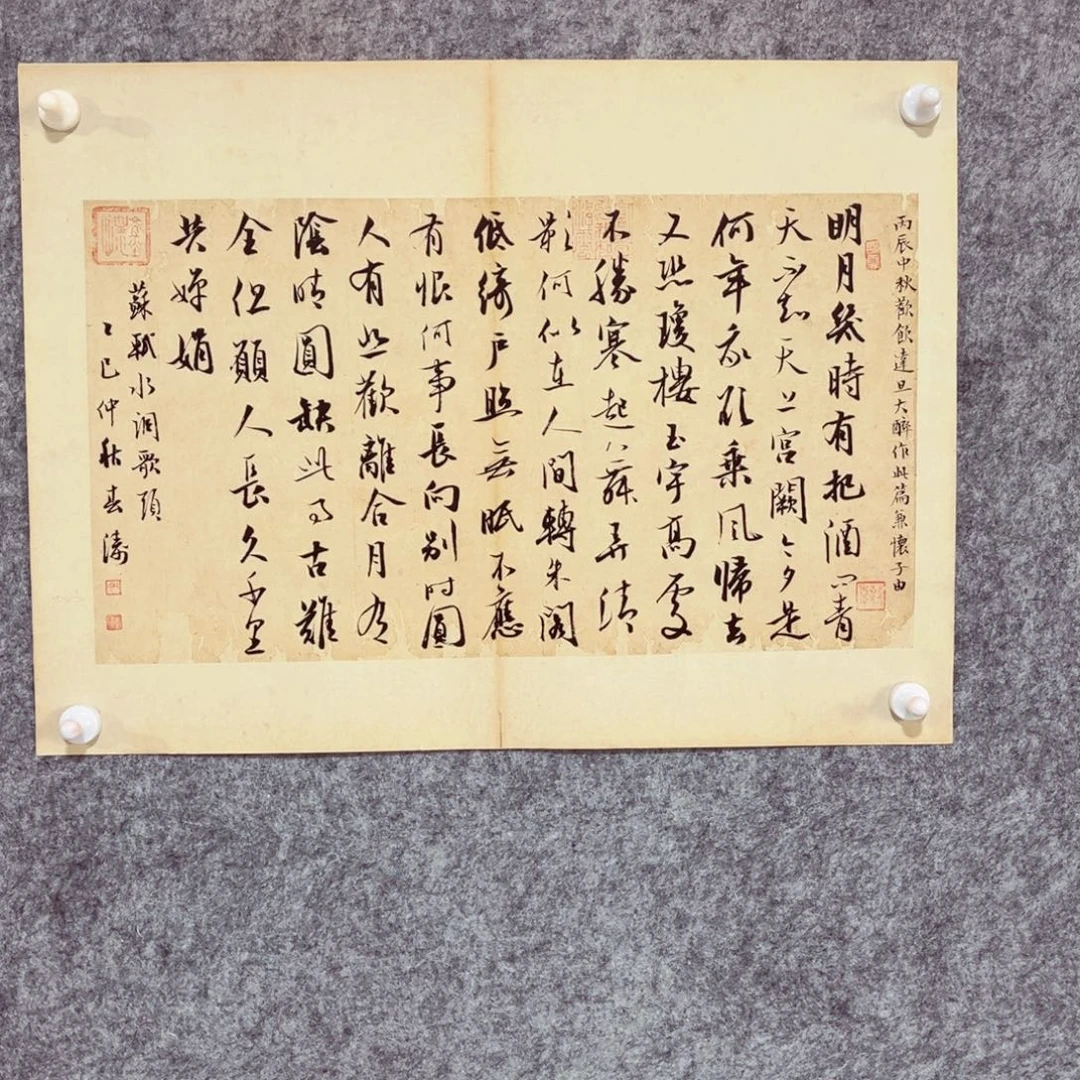 丙辰中秋歡飲達旦大醉作此篇兼懷子由
明月幾時有把酒問青
天不知天上宮闕今夕是
何年我欲乘風歸去
又恐瓊樓玉宇高處
不勝寒起舞弄清
影何似在人間轉朱閣
低綺戶照無眠不應
有恨何事長向別時圓
人有悲歡離合月有
陰晴圓缺此事古難
全但願人長久千里
共嬋娟
蘇軾水調歌頭
乙巳仲秋